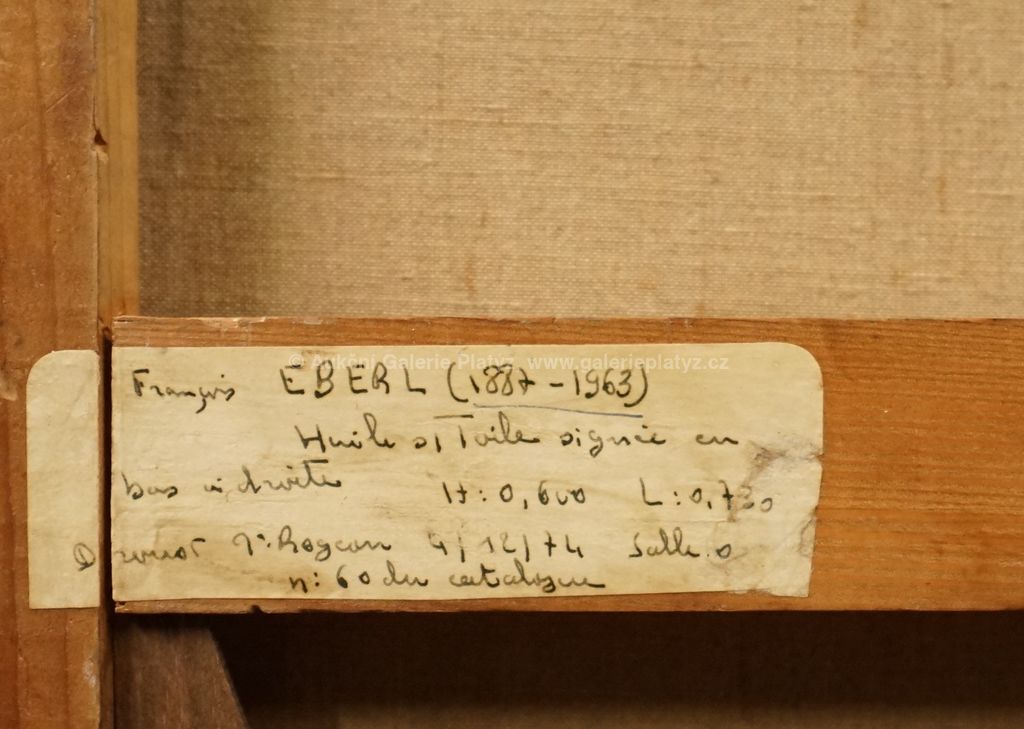 © Aukční Galerie Platýz, www.galerieplatyz.cz
François EBERL (1887-1963)
Huile s/Toile signée en
bas à droite H: 0,600 L: 0,730
Drouot 4/12/74 Salle
n: 60 du catalogue